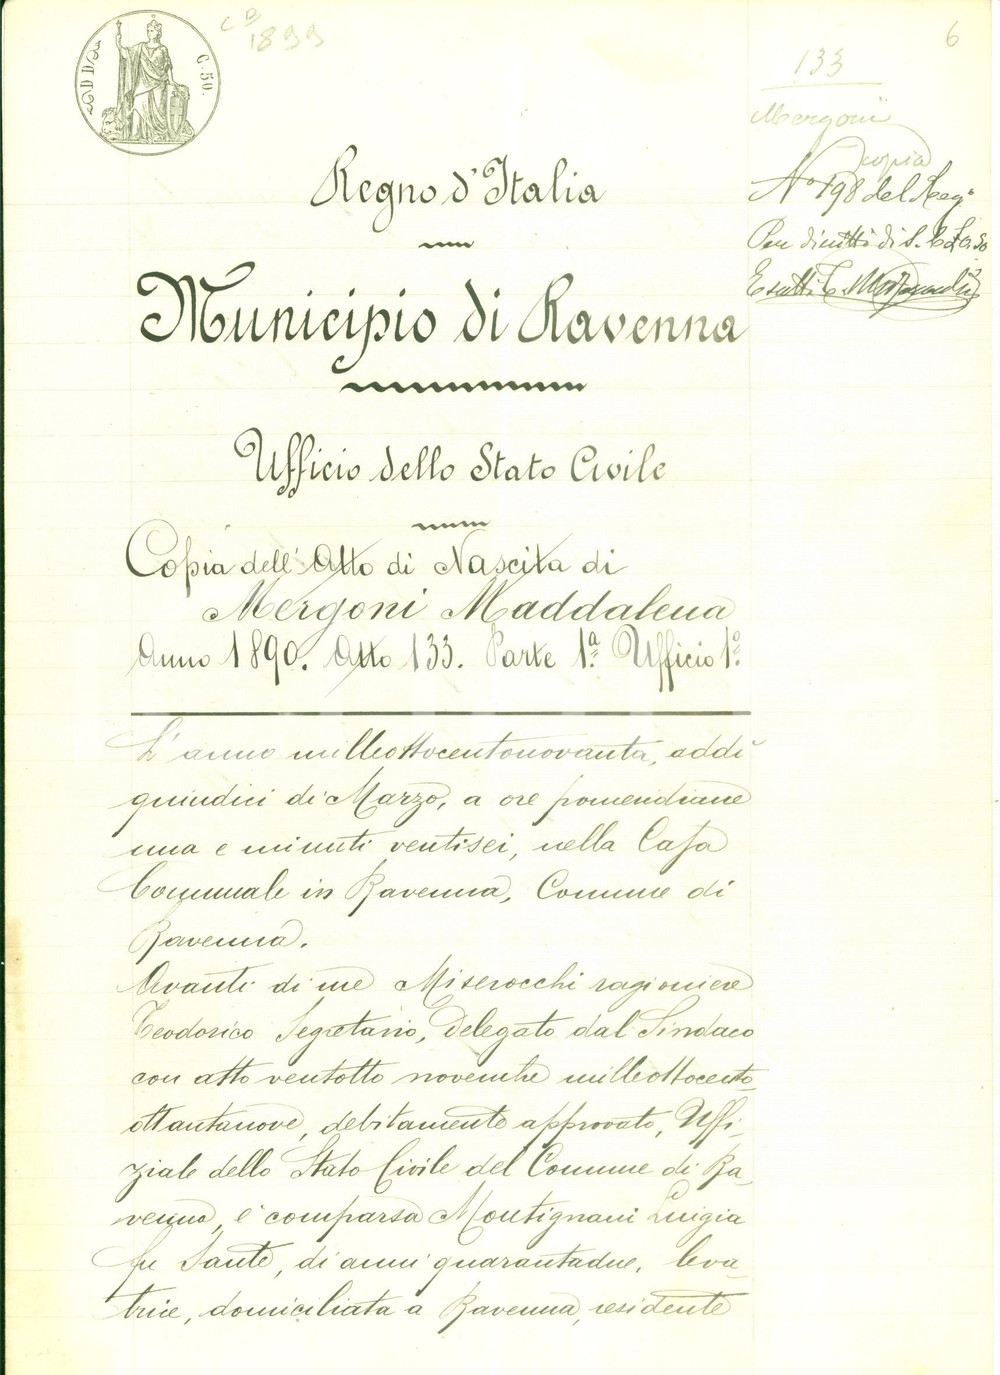 C. 50.
1899
6
133
Mergoni
copia
N° 198 del Reg°
Per diritti di S. C
Esatti
Regno d'Italia
Municipio di Ravenna
Ufficio dello Stato Civile
Copia dell'Atto di Nascita di
Mergoni Maddalena
Anno 1890. Atto 133. Parte 1ª Ufficio 1°.
L'anno milleottocentonovanta, addì
quindici di Marzo, a ore pomeridiane
una e minuti ventisei, nella Casa
Comunale in Ravenna, Comune di
Ravenna.
Avanti di me Miserocchi ragioniere
Teodorico Segretario, Delegato dal Sindaco
con atto ventotto novembre milleottocento
ottantanove, debitamente approvato, Uffi-
ziale dello Stato Civile del Comune di Ra-
venna, è comparsa Montignani Luigia
fu Sante, di anni quarantadue, leva-
trice, domiciliata a Ravenna, residente